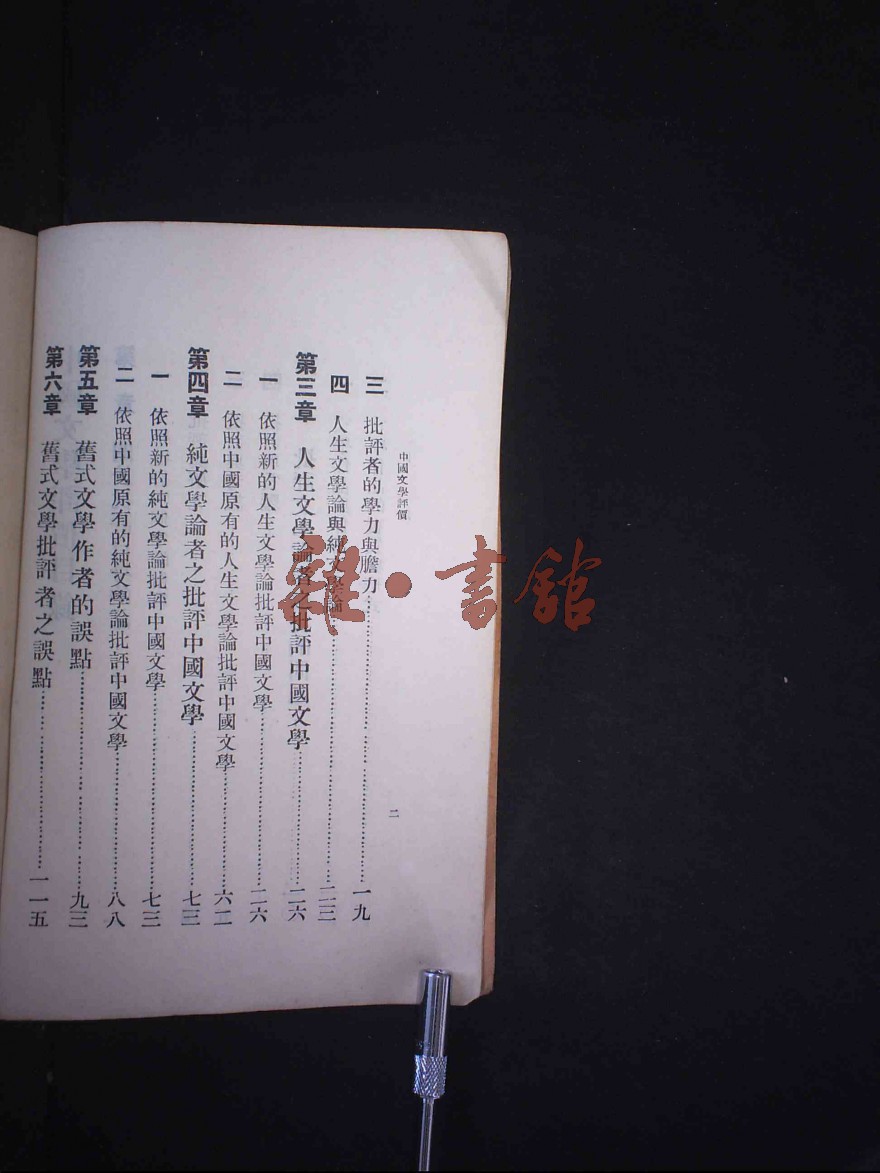 中國文學評價
二
三 批評者的學力與膽力 一九
四 人生文學論與純文學論 二三
第三章 人生文學論者之批評中國文學 二六
一 依照新的人生文學論批評中國文學 二六
二 依照中國原有的人生文學論批評中國文學 六二
第四章 純文學論者之批評中國文學 七三
一 依照新的純文學論批評中國文學 七三
二 依照中國原有的純文學論批評中國文學 八八
第五章 舊式文學作者的誤點 九三
第六章 舊式文學批評者之誤點 一一五
雜·書館